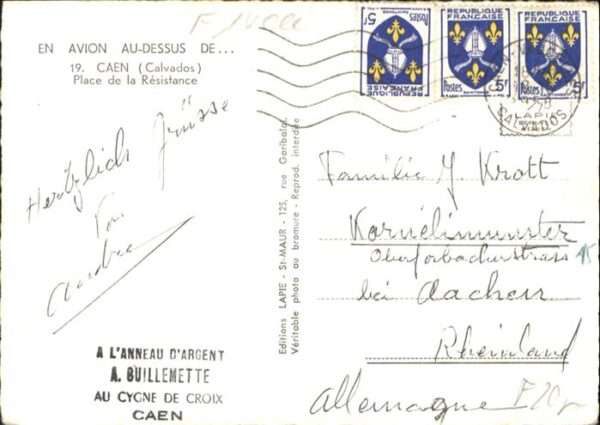 EN AVION AU-DESSUS DE...
19. CAEN (Calvados)
Place de la Résistance
Hertzlich Grüsse
Von
Andrée
A L'ANNEAU D'ARGENT
A. GUILLEMETTE
AU CYGNE DE CROIX
CAEN
Editions LAPIE - St-MAUR - 125, rue Garibaldi
Véritable photo au bromure - Reprod. interdite
REPUBLIQUE FRANÇAISE
5F
REPUBLIQUE FRANÇAISE
Postes 5F
REPUBLIQUE FRANÇAISE
Postes 5F
CALVADOS
LAPIE
Familie J. Krott
Kornelimünster
Oberforbacherstrass
bei Aachen
Rheinland
Allemagne